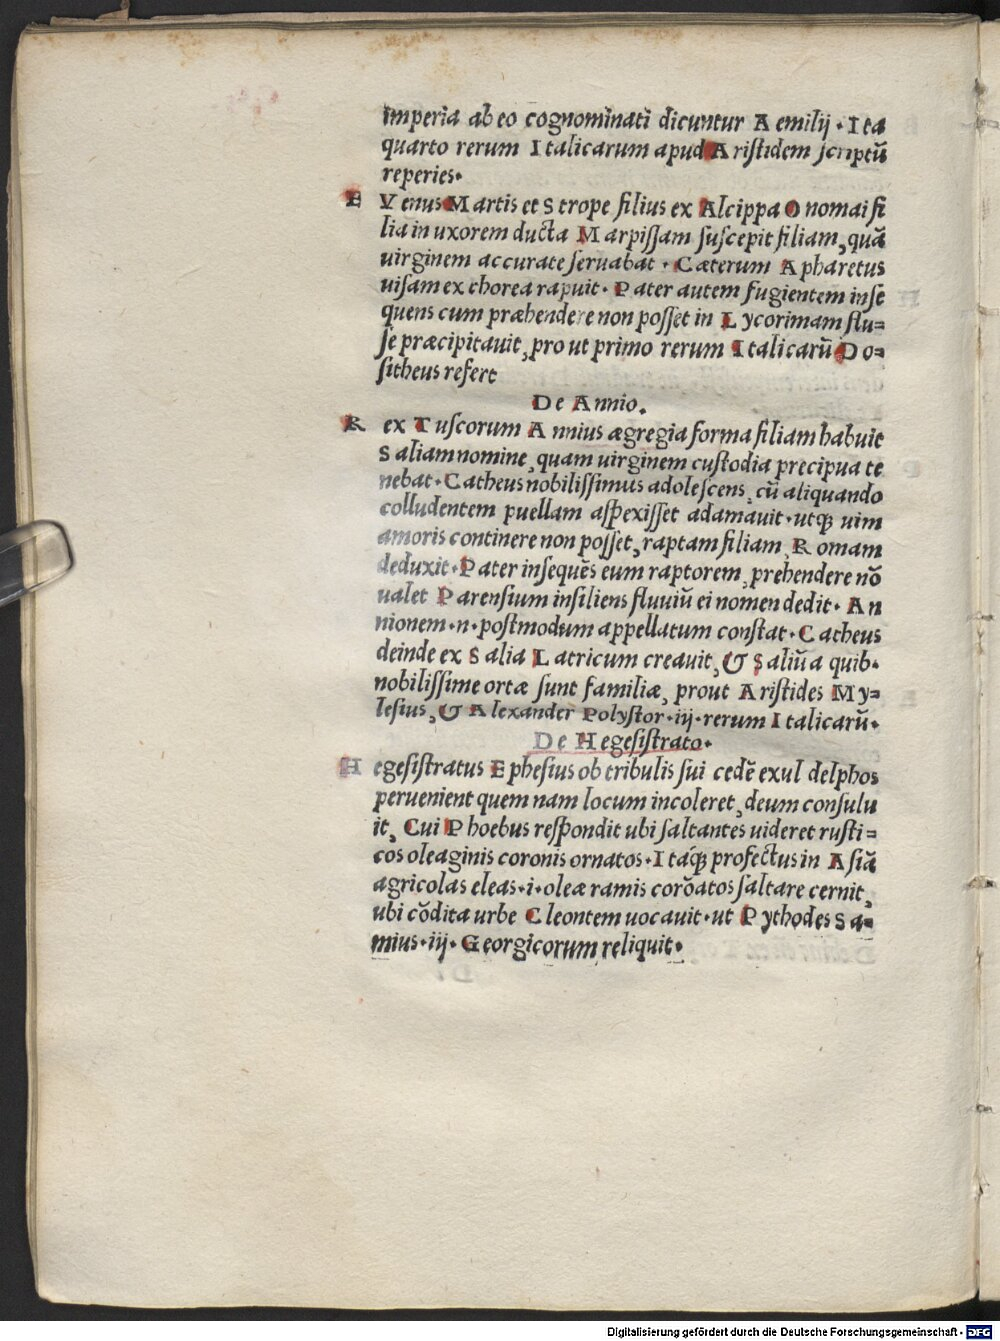 imperia ab eo cognominati dicuntur Aemilij. Ita
quarto rerum Italicarum apud Aristidem scriptū
reperies.
EVenus Martis et Strope filius ex Alcippa Onomai fi
lia in uxorem ducta Marpissam suscepit filiam, quā
uirginem accurate seruabat. Cæterum Apharetus
uisam ex chorea rapuit. Pater autem fugientem inse
quens cum præhendere non posset in Lycorimam flu=
se præcipitauit, pro ut primo rerum Italicarū Do=
sitheus refert
De Annio.
Rex Tuscorum Annius ægregia forma filiam habuit
Saliam nomine, quam uirginem custodia precipua te
nebat. Catheus nobilissimus adolescens, cū aliquando
colludentem puellam aspexisset adamauit. utqȝ uim
amoris continere non posset, raptam filiam, Romam
deduxit. Pater insequēs eum raptorem, prehendere nō
ualet Parensium insiliens fluuiū ei nomen dedit. An
nionem .n. postmodum appellatum constat. Catheus
deinde ex Salia Latricum creauit, & Saliū a quib.
nobilissime ortæ sunt familiæ, prout Aristides My=
lesius, & Alexander Polystor .iij. rerum Italicarū.
De Hegesistrato.
Hegesistratus Ephesius ob tribulis sui cedē exul delphos
peruenient quem nam locum incoleret, deum consulu
it, Cui Phoebus respondit ubi saltantes uideret rusti=
cos oleaginis coronis ornatos. Itaqȝ profectus in Asiā
agricolas eleas .i. oleæ ramis corōatos saltare cernit,
ubi cōdita urbe Cleontem uocauit. ut Pythodes Sa=
mius .iij. Georgicorum reliquit.
Digitalisierung gefördert durch die Deutsche Forschungsgemeinschaft - DFG